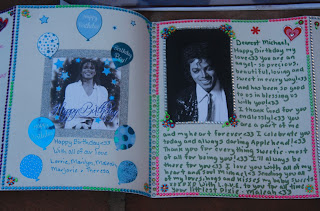 Happy Birthday
Happy Birthday<33
With all of our love
Lorrie, Marilyn, Mariah,
Marjorie + Theresa
Dearest Michael,
Happy Birthday my
love<33 you are an
angel- so precious,
beautiful, loving and
sweet in every way!<33
God has been so good
to us in blessing us
with you!<33
I thank God for you
endlessly<33 you
are a part of me
and my heart for ever<33 I celebrate you
today and always darling Apple head!<33
Thank you for every thing there is- most
of all for being you!<33 I'll always be
there for you<33 I love you with all my
heart and soul Michael<33 Sending you all
of my blessings and kisses my baby Turtle
xoxoxo with L.O.V.E. to you for all time
your littlest Dixie- Mariah <33